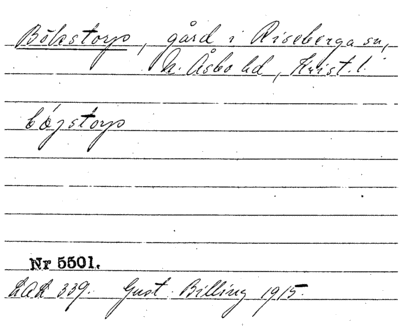 Bökstorp, gård i Riseberga sn,
N. Åsbo hd, Krist. l.
Nr 5501.
LAL 339. Gust. Billing 1915.